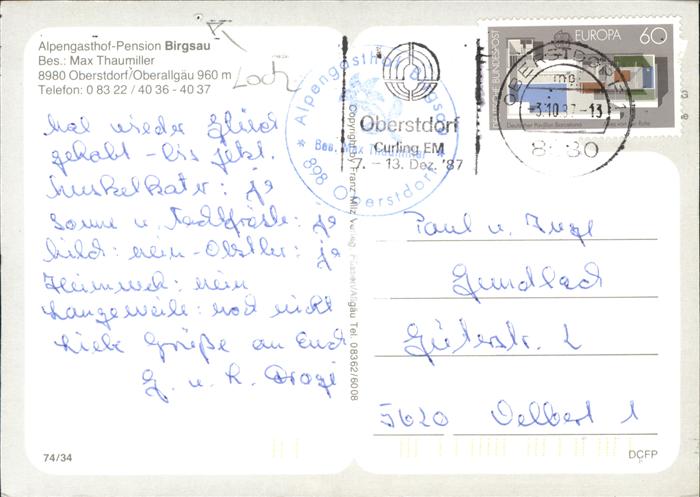 Alpengasthof-Pension Birgsau
Bes.: Max Thaumiller
8980 Oberstdorf/Oberallgäu 960 m
Telefon: 0 83 22 / 40 36 - 40 37
Loch
Mal wieder Glück
gehabt - bis jetzt.
Muskelkater: ja
Sonne u. Nachtfröste: ja
Wild: nein - Obstler: ja
Heimweh: nein
Langeweile: noch nicht
Liebe Grüße an Euch
G. u. H.
74/34
Alpengasthof Birgsau
Bes. Max Thaumiller
898 Oberstdorf
Oberstdorf
Curling EM
7. - 13. Dez. '87
Copyright by Franz Milz Verlag · Füssen/Allgäu Tel. 08362/6008
DEUTSCHE BUNDESPOST
EUROPA 60
Deutscher Pavillon Barcelona
OBERSTDORF 1
-3.10.87-13
8980
Paul u. Inge
Gundlach
Güterstr. 2
5620 Velbert 1
DCFP